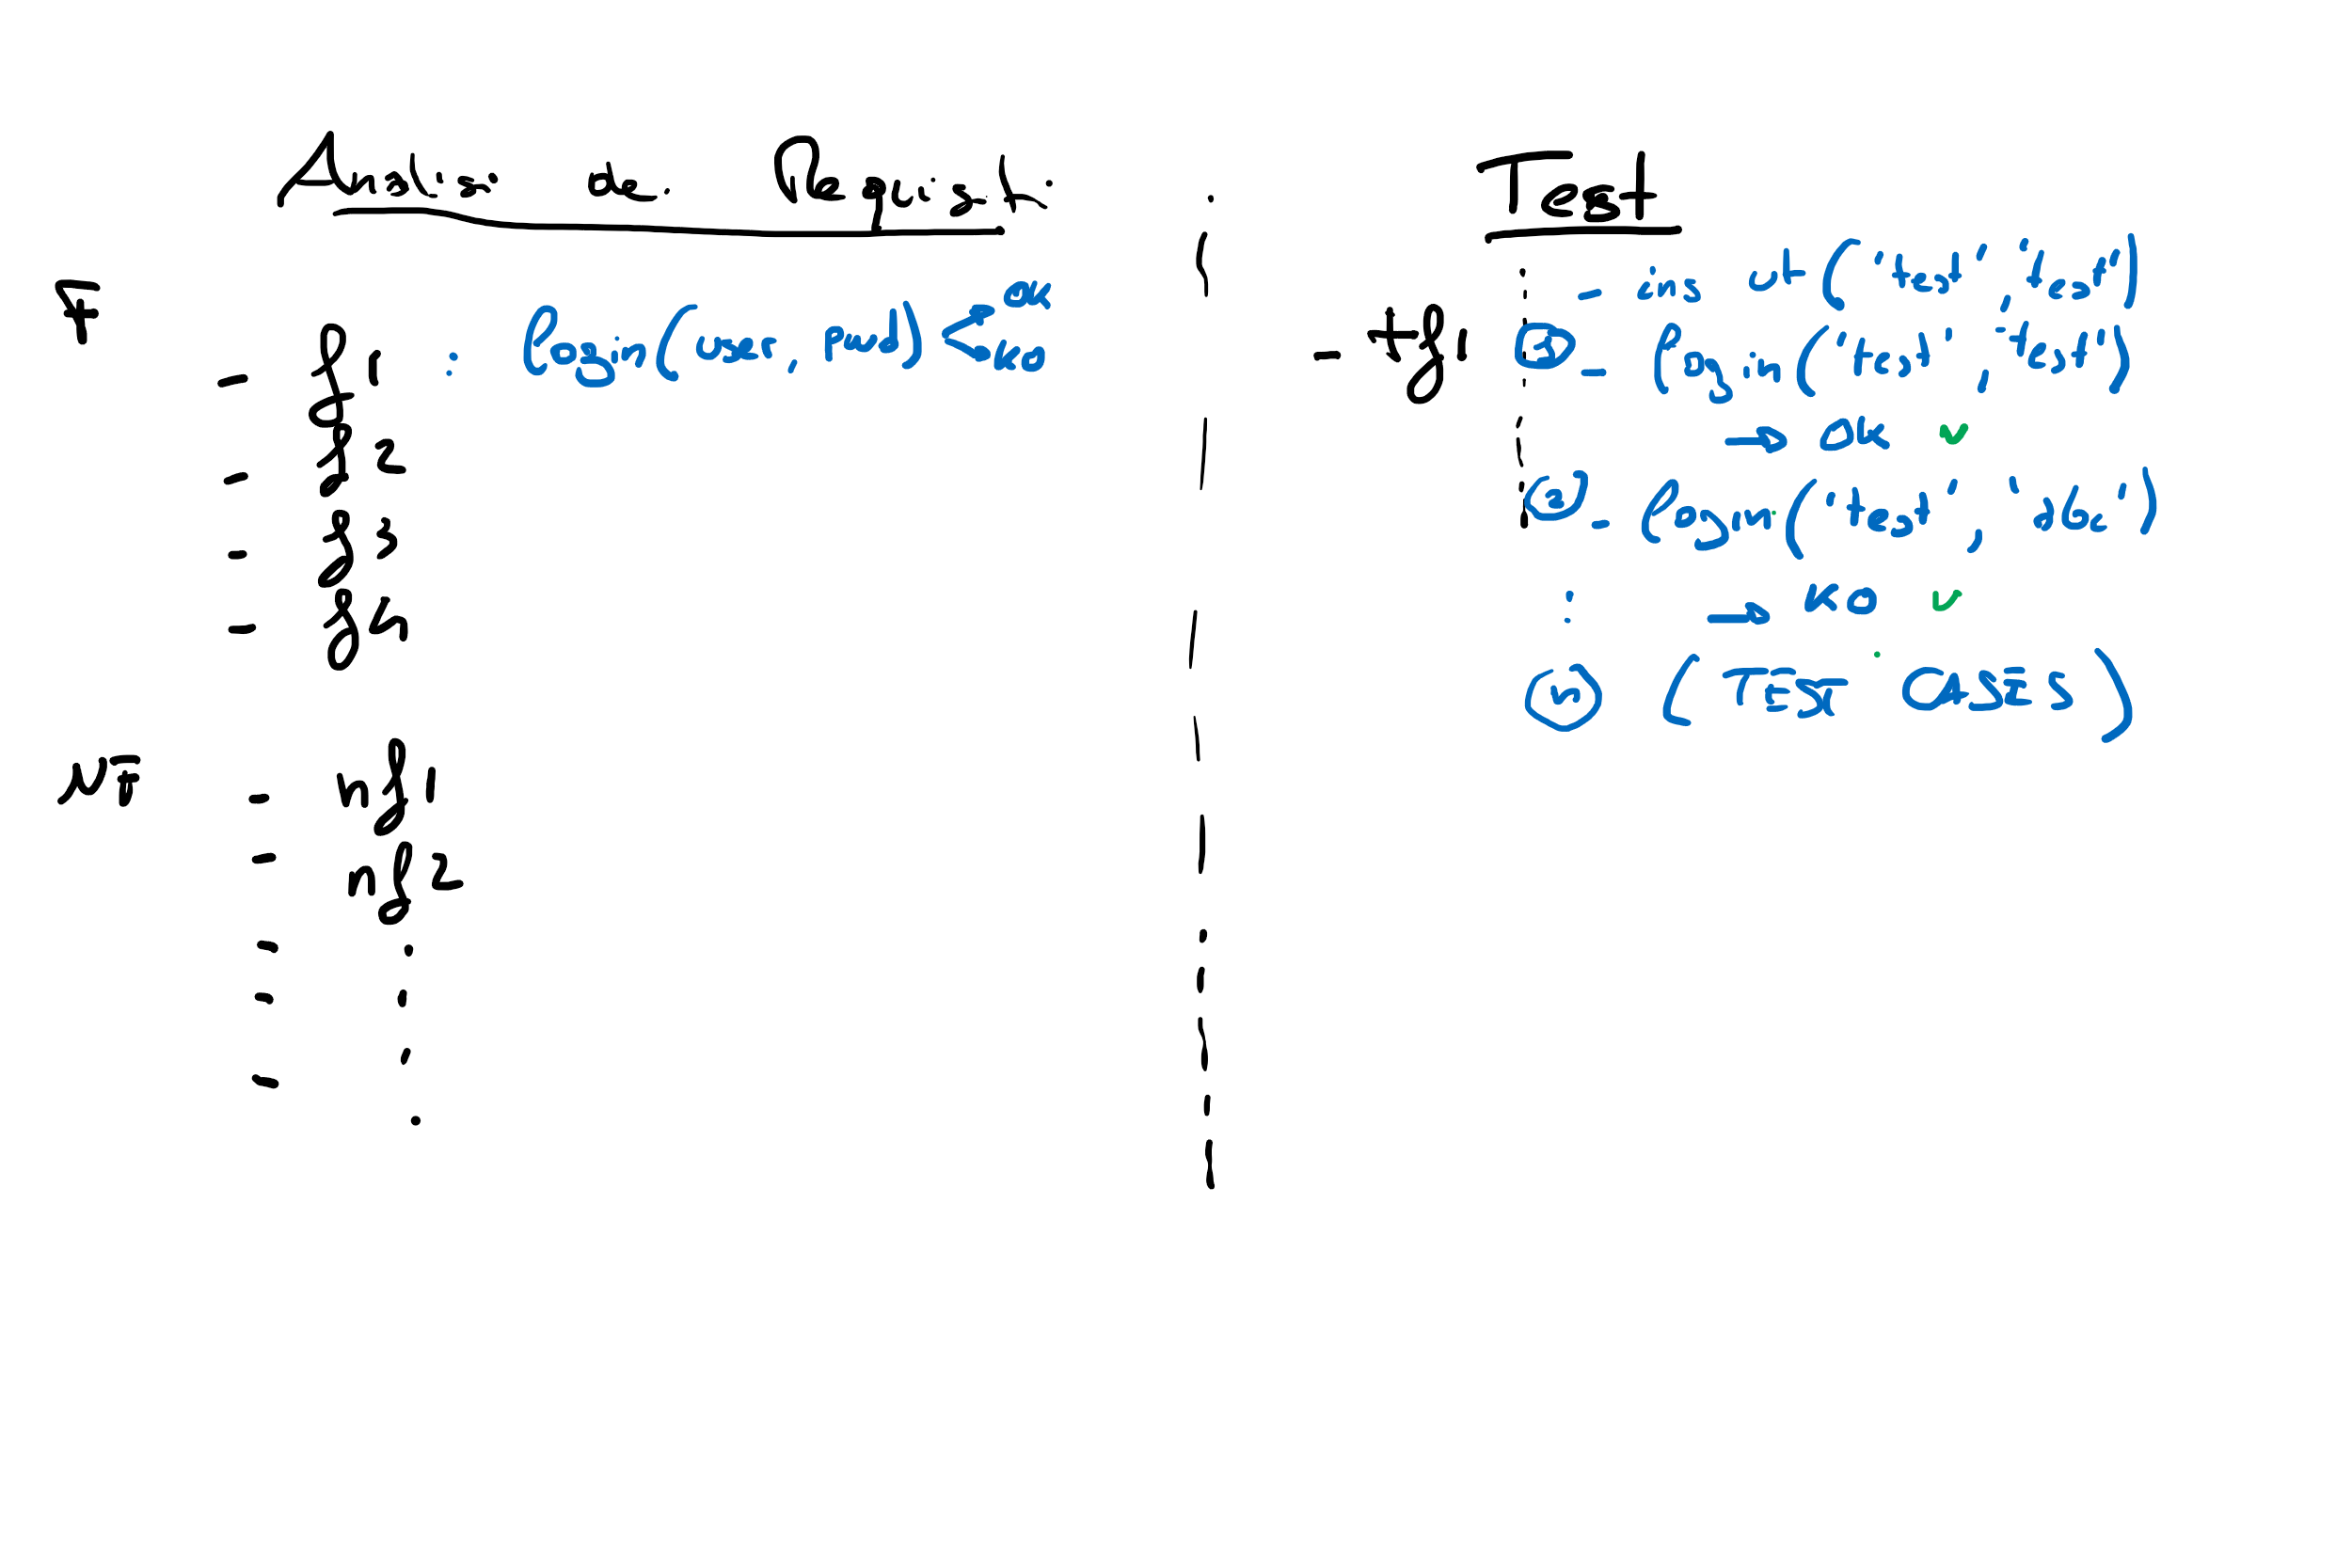 Analisi dei Requisiti
F
- f1 : Login(user, pwd) < ok ko
- f2
- f3
- f4
NF
- nf1
- nf2
-
-
-
Test
- tf1
- insert('test', 'test')
① - login('test', 'test')
→ OK
② - login('test', 'ddd')
→ KO
:
ⓝ (TEST CASES)